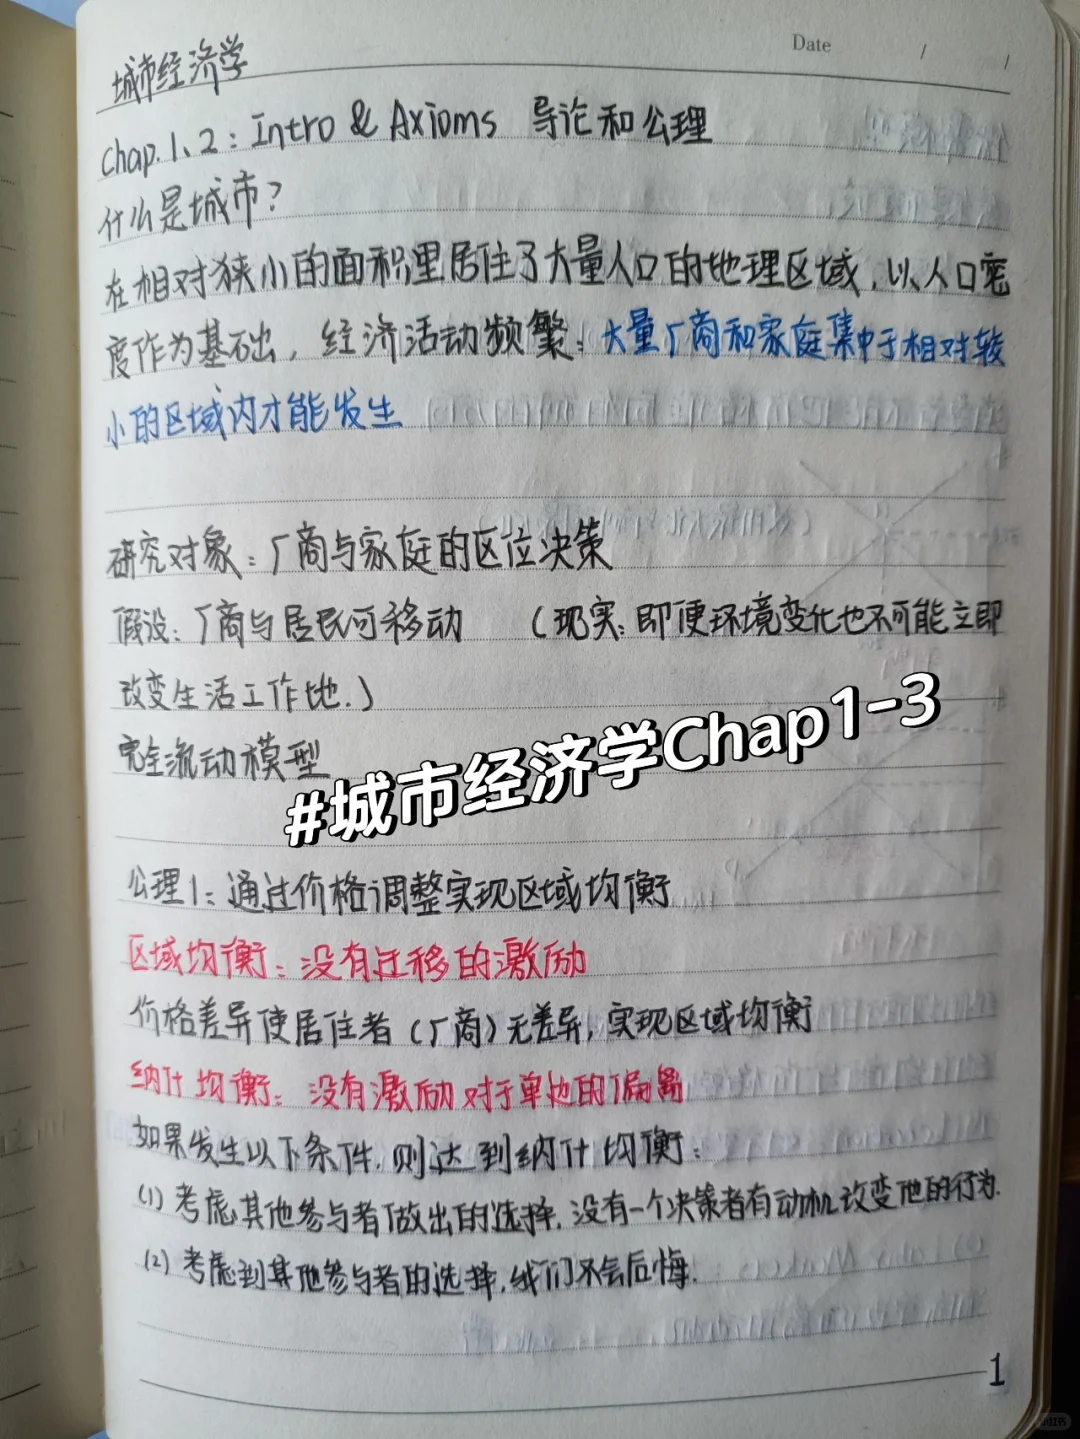 Date / /
城市经济学
Chap.1、2：Intro & Axioms 导论和公理
什么是城市？
在相对狭小的面积里居住了大量人口的地理区域，以人口密
度作为基础，经济活动频繁：大量厂商和家庭集中于相对较
小的区域内才能发生
研究对象：厂商与家庭的区位决策
假设：厂商与居民可移动 （现实：即便环境变化也不可能立即
改变生活工作地.）
完全流动模型
#城市经济学Chap1-3
公理1：通过价格调整实现区域均衡
区域均衡：没有迁移的激励
价格差异使居住者（厂商）无差异，实现区域均衡
纳什均衡：没有激励对于单边的偏离
如果发生以下条件，则达到纳什均衡：
(1) 考虑其他参与者做出的选择，没有一个决策者有动机改变他的行为.
(2) 考虑到其他参与者的选择，我们不会后悔.
1